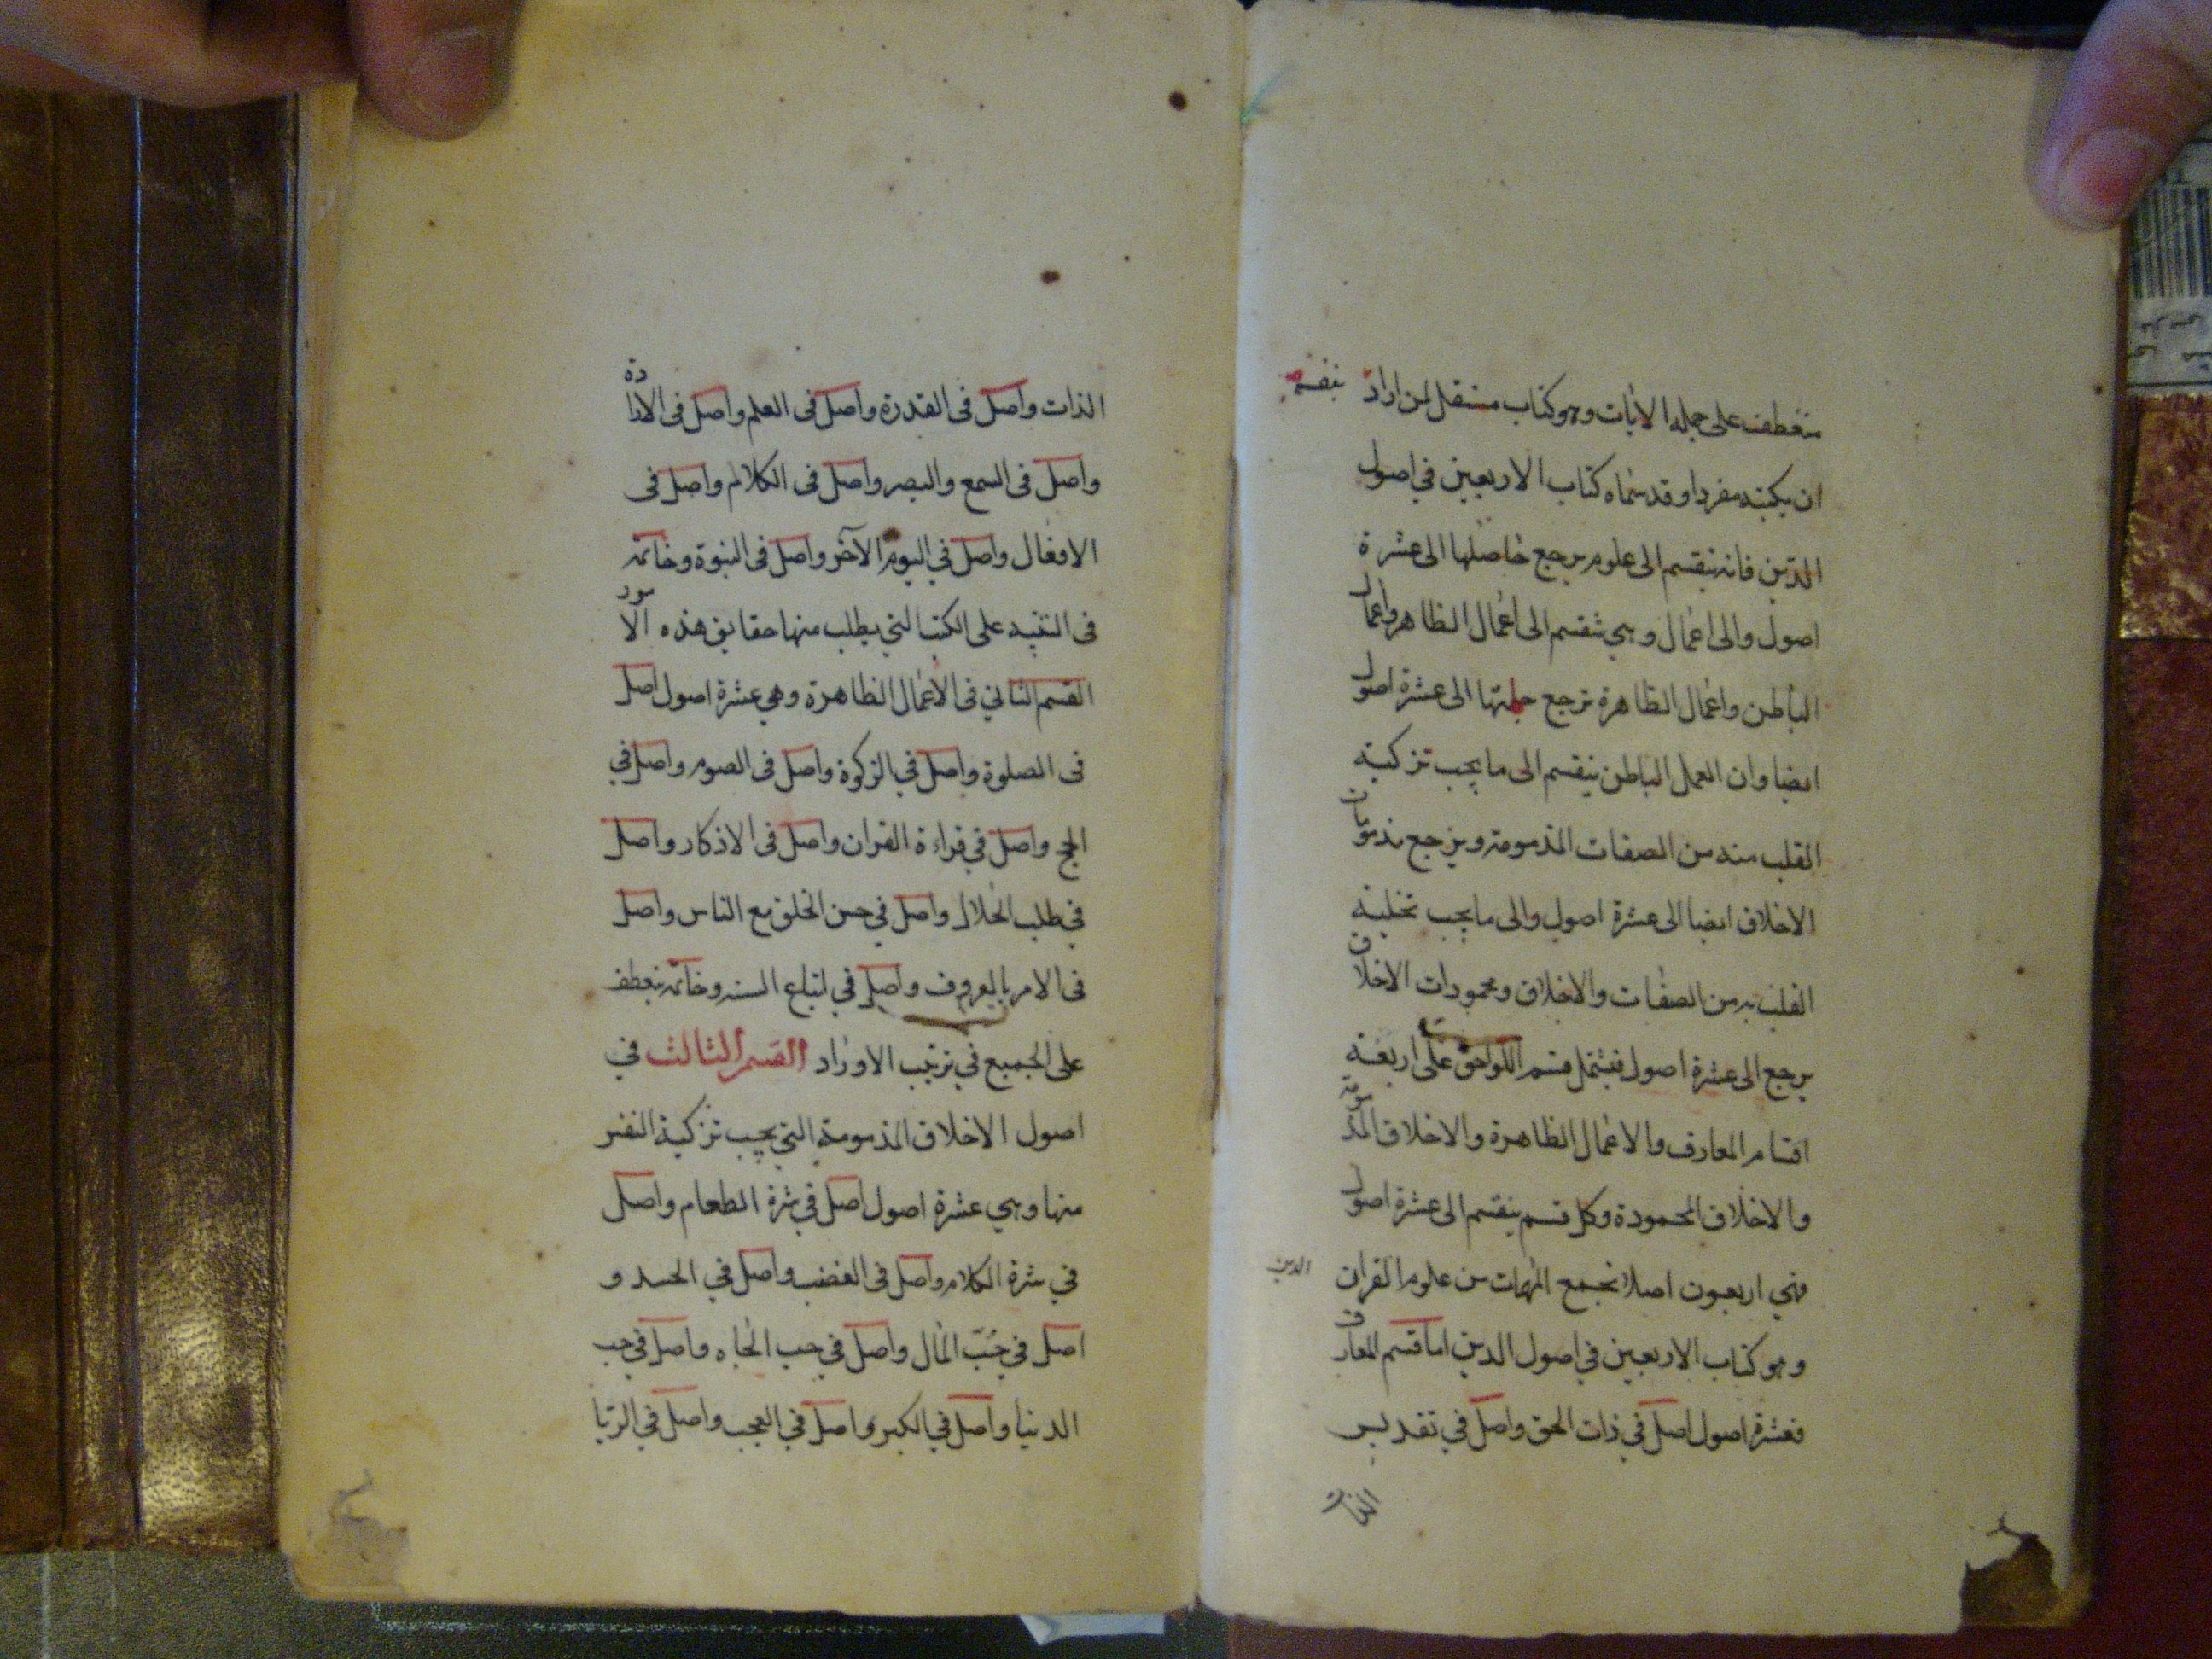 منعطف على جملة الايات وهو كتاب مستقل لمن اراد
ان يكتبه مفردا وقد سماه كتاب الاربعين في اصول
الدين فانه ينقسم الى علوم يرجع حاصلها الى عشرة
اصول والى اعمال وهي تنقسم الى اعمال الظاهر واعمال
الباطن واعمال الظاهرة ترجع جملتها الى عشرة اصول
ايضا وان العمل الباطن ينقسم الى ما يجب تزكية
القلب منه من الصفات المذمومة ويرجع مذمومات
الاخلاق ايضا الى عشرة اصول والى ما يجب تحلية
القلب به من الصفات والاخلاق ومحمودات الاخلاق
يرجع الى عشرة اصول فيشتمل قسم اللواحق على اربعة
اقسام المعارف والاعمال الظاهرة والاخلاق المذمومة
والاخلاق المحمودة وكل قسم ينقسم الى عشرة اصول
فهي اربعون اصلا تجمع المهمات من علوم القران
الدين
وهو كتاب الاربعين في اصول الدين اما قسم المعارف
فعشرة اصول اصل في ذات الحق واصل في تقديس
الذات واصل فى القدرة واصل فى العلم واصل فى الارادة
واصل فى السمع والبصر واصل فى الكلام واصل فى
الافعال واصل في اليوم الآخر واصل فى النبوة وخاتمة
فى التنبيه على الكتب التي يطلب منها حقايق هذه الامور
القسم الثاني فى الاعمال الظاهرة وهي عشرة اصول اصل
فى الصلوة واصل في الزكوة واصل فى الصوم واصل في
الحج واصل في قراءة القران واصل فى الاذكار واصل
في طلب الحلال واصل في حسن الخلق مع الناس واصل
فى الامر بالمعروف واصل في اتباع السنة وخاتمة ينعطف
على الجميع في ترتيب الاوراد القسم الثالث في
اصول الاخلاق المذمومة التي يجب تزكية النفس
منها وهي عشرة اصول اصل في شرة الطعام واصل
في شرة الكلام واصل فى الغضب واصل في الحسد و
اصل في حُبّ المال واصل في حب الجاه واصل في حب
الدنيا واصل في الكبر واصل في العجب واصل في الريا